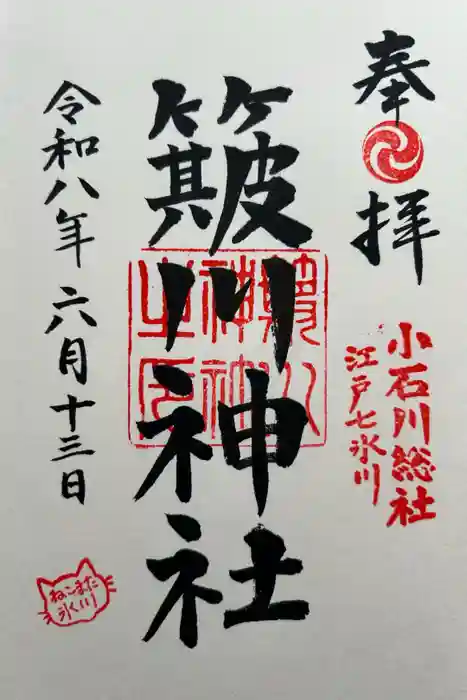 奉拝
小石川総社
江戸七氷川
簸川神社
簸川神社之印
令和八年六月十三日
ねこまた
氷川